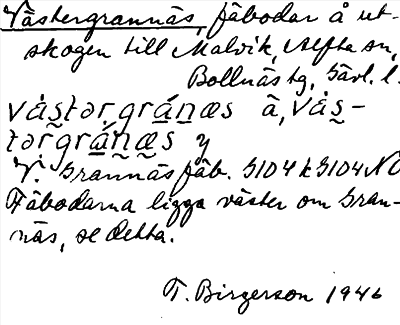 Västergrannäs, fäbodar å ut-
skogen till Malvik, Alfta sn,
Bollnäs tg, Gävl. l.
våstər gránæs ā, våṣ-
tərgránæs y
V. Grannäs fäb. G104 k G104 NO
Fäbodarna ligga väster om Gran-
näs, se detta.
T. Birgerson 1946